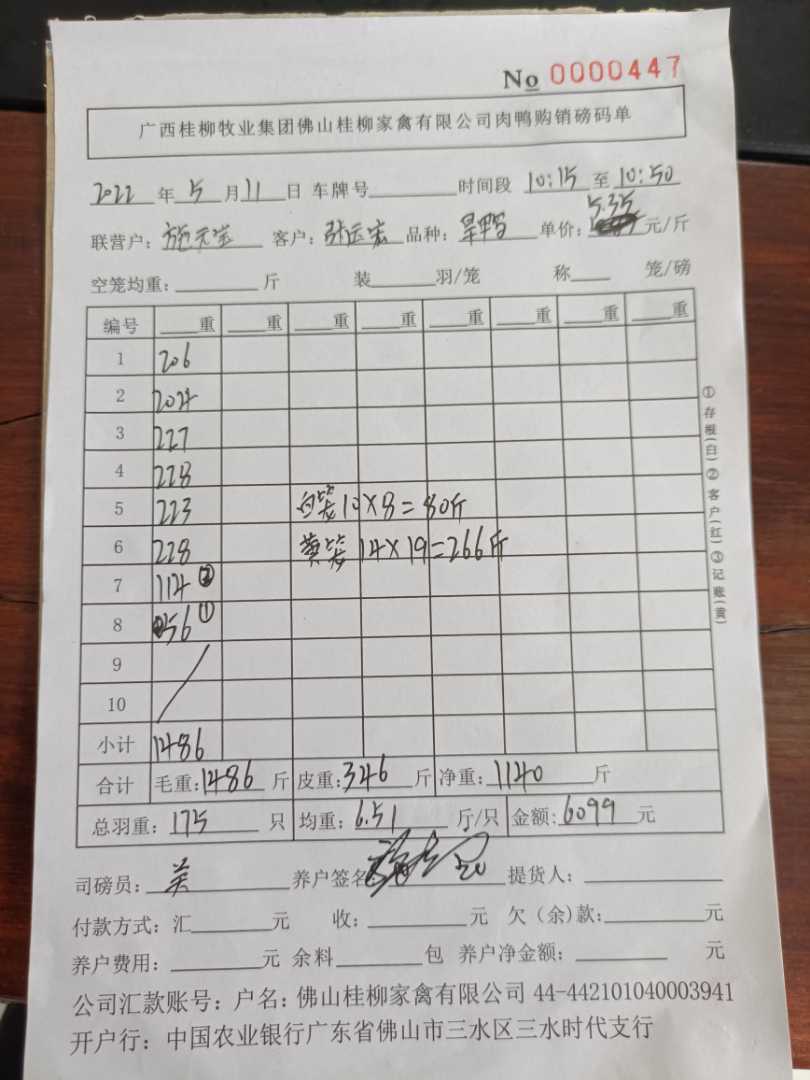 No 0000447
广西桂柳牧业集团佛山桂柳家禽有限公司肉鸭购销磅码单
2022年5月11日 车牌号 时间段 10:15至10:50
联营户: 客户:张运宏 品种:旱鸭 单价:5.35元/斤
空笼均重: 斤 装 羽/笼 称 笼/磅
编号 重 重 重 重 重 重 重 重
1 206
2 204
3 227
4 228
5 223 白笼10×8=80斤
6 228 黄笼14×19=266斤
7 114②
8 56①
9
10
小计 1486
合计 毛重:1486斤 皮重:346斤 净重:1140斤
总羽重:175只 均重:6.51斤/只 金额:6099元
司磅员:关 养户签名: 提货人:
付款方式:汇 元 收: 元 欠(余)款: 元
养户费用: 元 余料 包 养户净金额: 元
公司汇款账号:户名:佛山桂柳家禽有限公司 44-442101040003941
开户行:中国农业银行广东省佛山市三水区三水时代支行
①存根(白)②客户(红)③记账(黄)